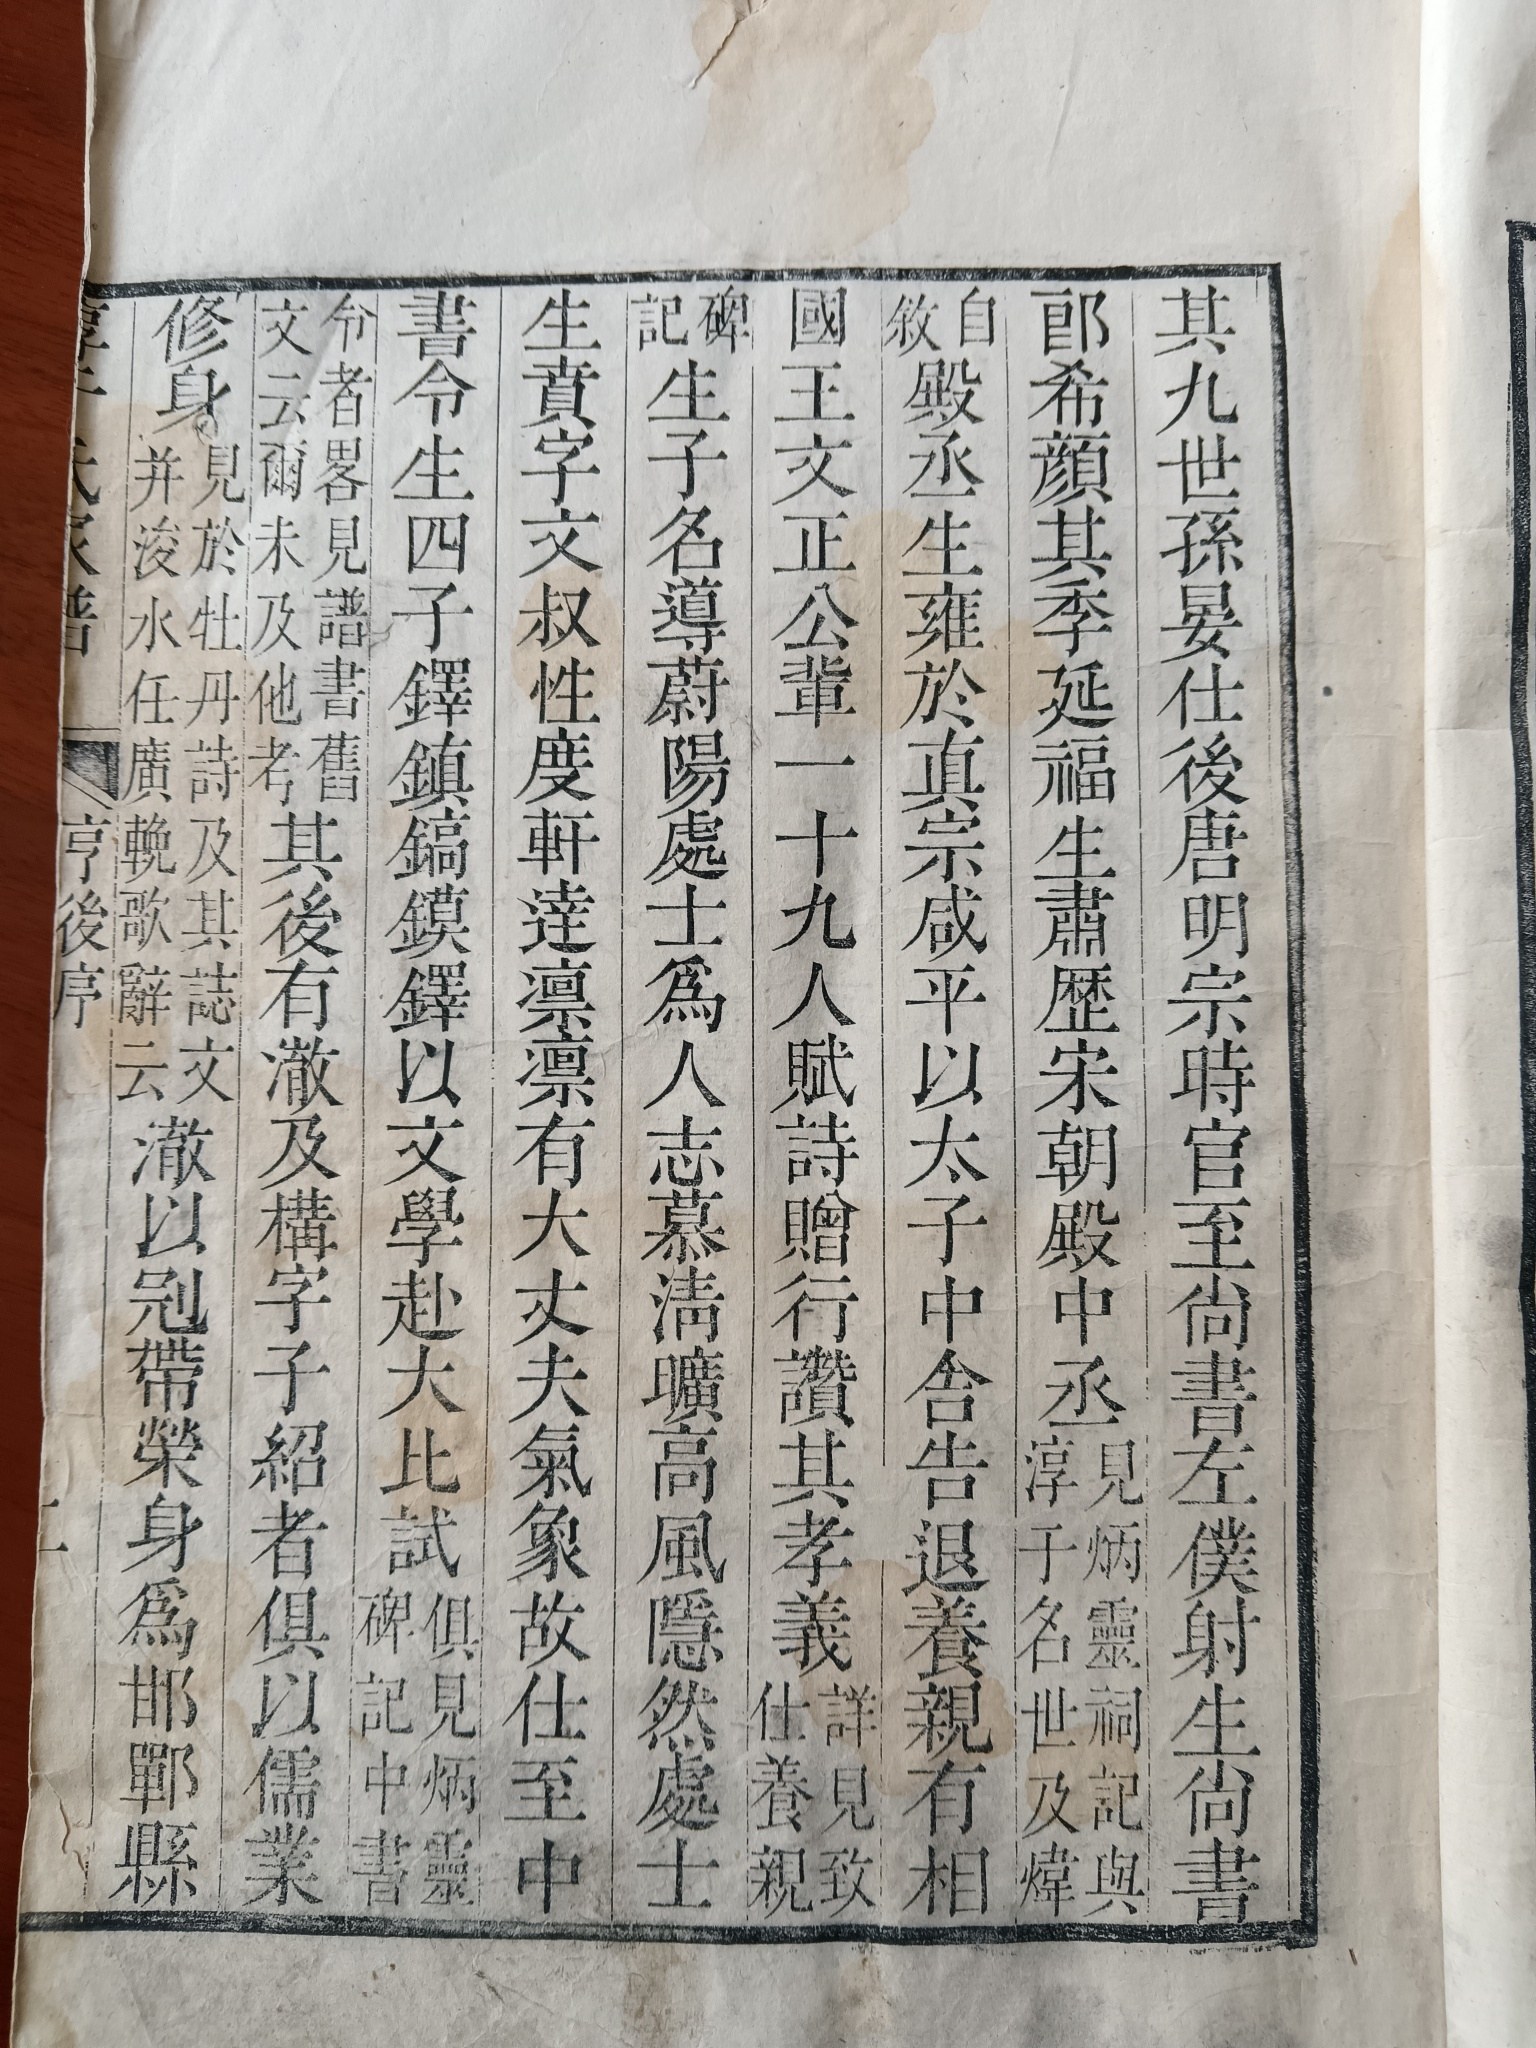 其九世孫晏仕後唐明宗時官至尙書左僕射生尙書
郎希顔其季延福生肅歴宋朝殿中丞見炳靈祠記與淳于名世及煒
自敘殿丞生雍於真宗咸平以太子中舍告退養親有相
國王文正公輩一十九人賦詩贈行讚其孝義詳見致仕養親
碑記生子名導蔚陽處士爲人志慕淸曠高風隱然處士
生賁字文叔性度軒達凛凛有大丈夫氣象故仕至中
書令生四子鐸鎮鎬鏌鐸以文學赴大比試俱見炳靈碑記中書
令者畧見譜書舊文云爾未及他考其後有澈及構字子紹者俱以儒業
修身見於牡丹詩及其誌文并浚水任廣輓歌辭云澈以冠帶榮身爲邯鄲縣
亨後序